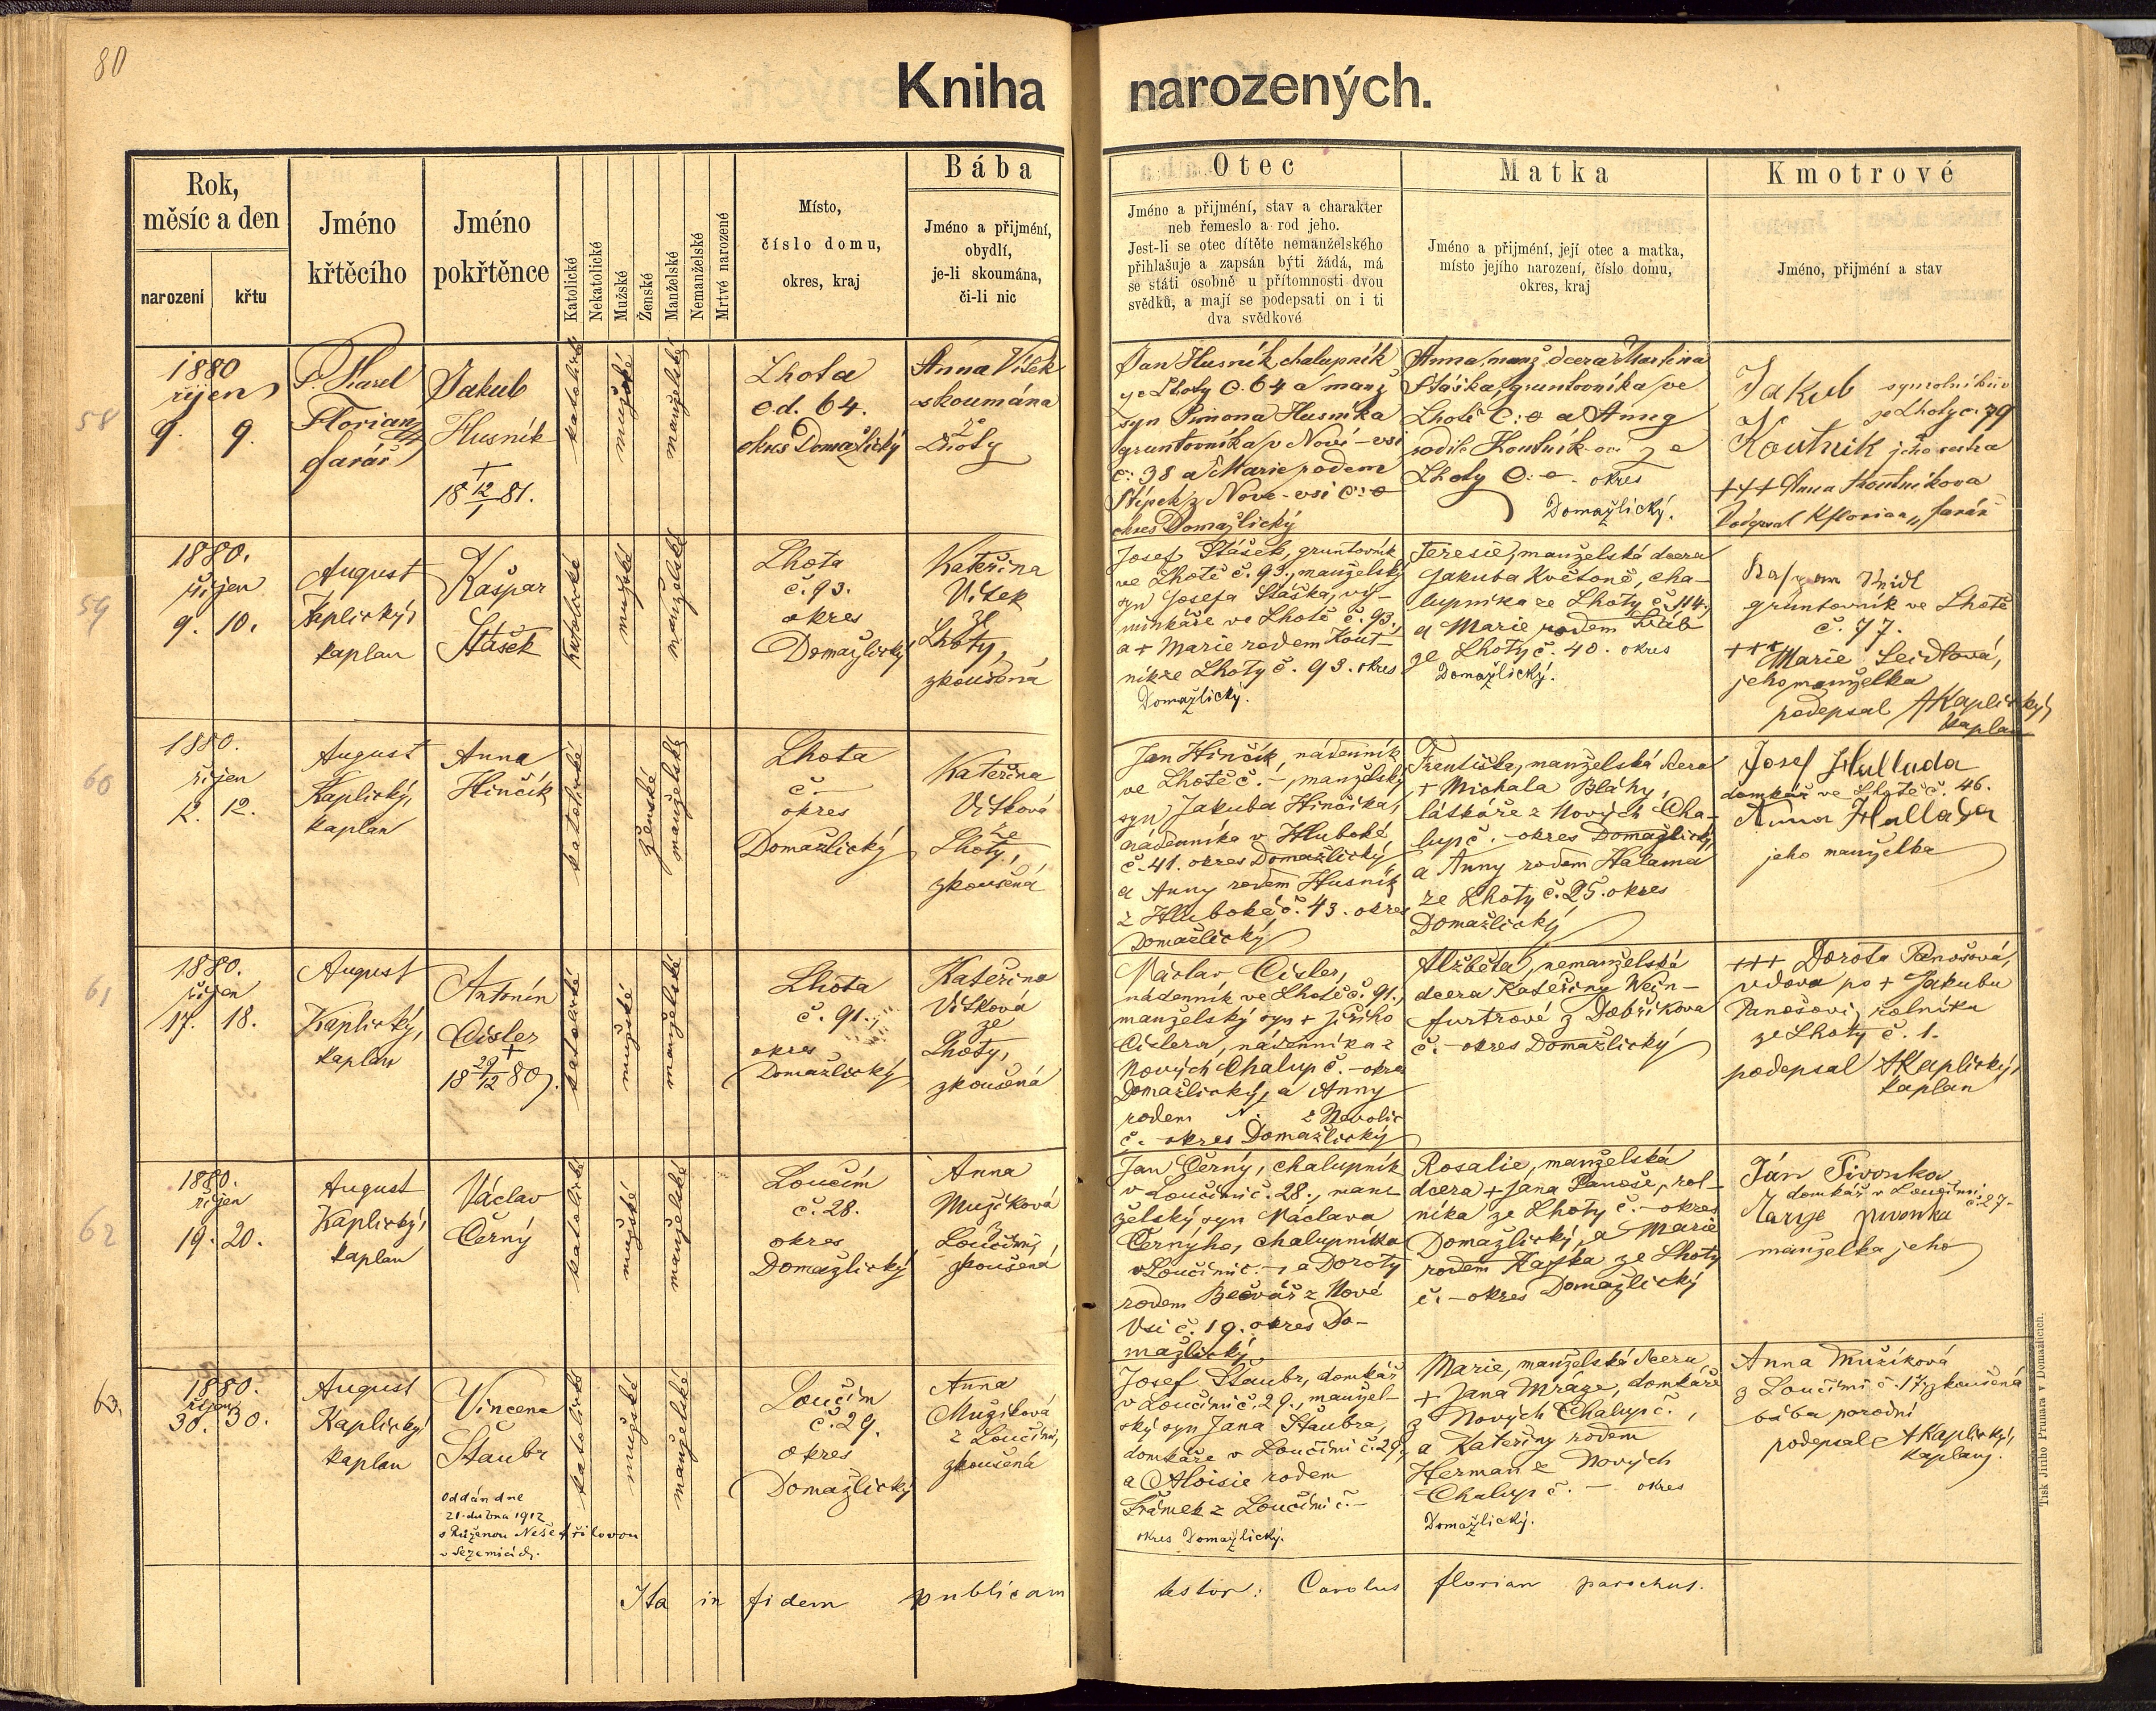 80
Kniha narozených.
Rok,
měsíc a den
narození
křtu
Jméno
křtěcího
Jméno
pokřtěnce
Katolické
Nekatolické
Mužské
Ženské
Manželské
Nemanželské
Mrtvé narozené
Místo,
číslo domu,
okres, kraj
Bába
Jméno a přijmení,
obydlí,
je-li skoumána,
či-li nic
Otec
Jméno a přijmení, stav a charakter
neb řemeslo a rod jeho.
Jest-li se otec dítěte nemanželského
přihlašuje a zapsán býti žádá, má
se státi osobně u přítomnosti dvou
svědků, a mají se podepsati on i ti
dva svědkové
Matka
Jméno a přijmení, její otec a matka,
místo jejího narození, číslo domu,
okres, kraj
Kmotrové
Jméno, přijmení a stav
58
1880
říjen
9. 9.
P. Karel
Florian
farář
Jakub
Husník
+
18 12/1 81.
katolické
mužské
manželský
Lhota
č.d. 64.
okres Domažlický
Anna Vítek
skoumána
ze
Lhoty
Jan Husník, chalupník
ze Lhoty č. 64 a manž
syn Šimona Husníka
gruntovníka v Nové-vsi
č: 38 a Marie rodem
z Nové-vsi č: 0
okres Domažlický
Anna, manž dcera Martina
Staška, gruntovníka ve
Lhotě č: 0 a Anny
rodilé Koutník ze
Lhoty č: 0. okres
Domažlický.
Jakub syn rolníkův
ze Lhoty č. 79
Koutník jeho sestra
+++ Anna Koutníkova
Podepsal KFlorian, farář
59
1880.
říjen
9. 10.
August
Kaplický,
kaplan
Kašpar
Stašek
katolické
mužské
manželské
Lhota
č. 93.
okres
Domažlický
Kateřina
Vítek
ze
Lhoty,
zkoušená
Josef Stašek, gruntovník
ve Lhotě č. 93., manželský
syn Josefa Staška, vý-
minkáře ve Lhotě č. 93.,
a + Marie rodem Kout-
ník ze Lhoty č. 93. okres
Domažlický.
Teresie, manželská dcera
Jakuba Květoně, cha-
lupníka ze Lhoty č. 114.
a Marie rodem
ze Lhoty č. 40. okres
Domažlický.
gruntovník ve Lhotě
č. 77.
+++ Marie Seidlová,
jeho manželka
podepsal AKaplický,
kaplan
60
1880.
říjen
12. 12.
August
Kaplický,
kaplan
Anna
Hinčík
katolické
ženské
manželské
Lhota
č. –
okres
Domažlický
Kateřina
Vítková
ze
Lhoty,
zkoušená
Jan Hinčík, nádenník
ve Lhotě č. –, manželský
syn Jakuba Hinčíka,
nádenníka v Hluboké,
č. 41. okres Domažlický,
a Anny rodem Husník
z Hluboké č. 43. okres
Domažlický
Františka, manželská dcera
+ Michala Bláhy,
látkáře z Nových Cha-
lup č. – okres Domažlický,
a Anny rodem Halama
ze Lhoty č. 25. okres
Domažlický
Josef Hallada
domkář ve Lhotě č. 46.
Anna Hallada
jeho manželka
61
1880.
říjen
17. 18.
August
Kaplický,
kaplan
Antonín
Cisler
+
18 29/12 80.
katolické
mužské
manželské
Lhota
č. 91.
okres
Domažlický
Kateřina
Vítková
ze
Lhoty,
zkoušená
Václav Cisler,
nádenník ve Lhotě č. 91.,
manželský syn + Jiřího
Cislera, nádenníka z
Nových Chalup č. – okres
Domažlický, a Anny
rodem N. z Nevolic
č. – okres Domažlický
Alžběta, nemanželská
dcera Kateřiny Wein-
furtrové z Dobříkova
č. – okres Domažlický
+++ Dorota Panošová,
vdova po + Jakubu
Panošovi, rolníku
ze Lhoty č. 1.
podepsal AKaplický,
kaplan
62
1880.
říjen
19. 20.
August
Kaplický,
kaplan
Václav
Černý
katolické
mužské
manželské
Loučim
č. 28.
okres
Domažlický
Anna
Mužíková
z
Loučimi,
zkoušená
Jan Černý, chalupník
v Loučimi č. 28., man-
želský syn Václava
Černýho, chalupníka
v Loučimi č. –, a Doroty
rodem Bečvář z Nové
Vsi č. 19. okres Do-
mažlický
Rosalie, manželská
dcera + Jana Panoše, rol-
níka ze Lhoty č. – okres
Domažlický, a Marie
rodem Kajska ze Lhoty
č. – okres Domažlický
Ján Pivonka
domkář v Loučimi č. 27.
Marye pivonka
manželka jeho
63.
1880.
říjen
30. 30.
August
Kaplický
kaplan
Vincenc
Štaubr
Oddán dne
21. dubna 1912
s Růženou Nešetřilovou
v Sezemicích.
katolické
mužské
manželské
Loučim
č. 29.
okres
Domažlický
Anna
Mužíková
z Loučimi,
zkoušená
Josef Štaubr, domkář
v Loučimi č. 29., manžel-
ský syn Jana Štaubra,
domkáře v Loučimi č. 29,
a Aloisie rodem
Šrámek z Loučimi č. –
okres Domažlický.
Marie, manželská dcera
+ Jana Mráze, domkáře
z Nových Chalup č. ,
a Kateřiny rodem
Herman z Nových
Chalup č. – okres
Domažlický.
Anna Mužíková
z Loučimi č. 17, zkoušená
bába porodní
podepsal AKaplický,
kaplan.
Ita in fidem publicam testor: Carolus florian parochus.
Tisk Jiřího Prunara v Domažlicích.